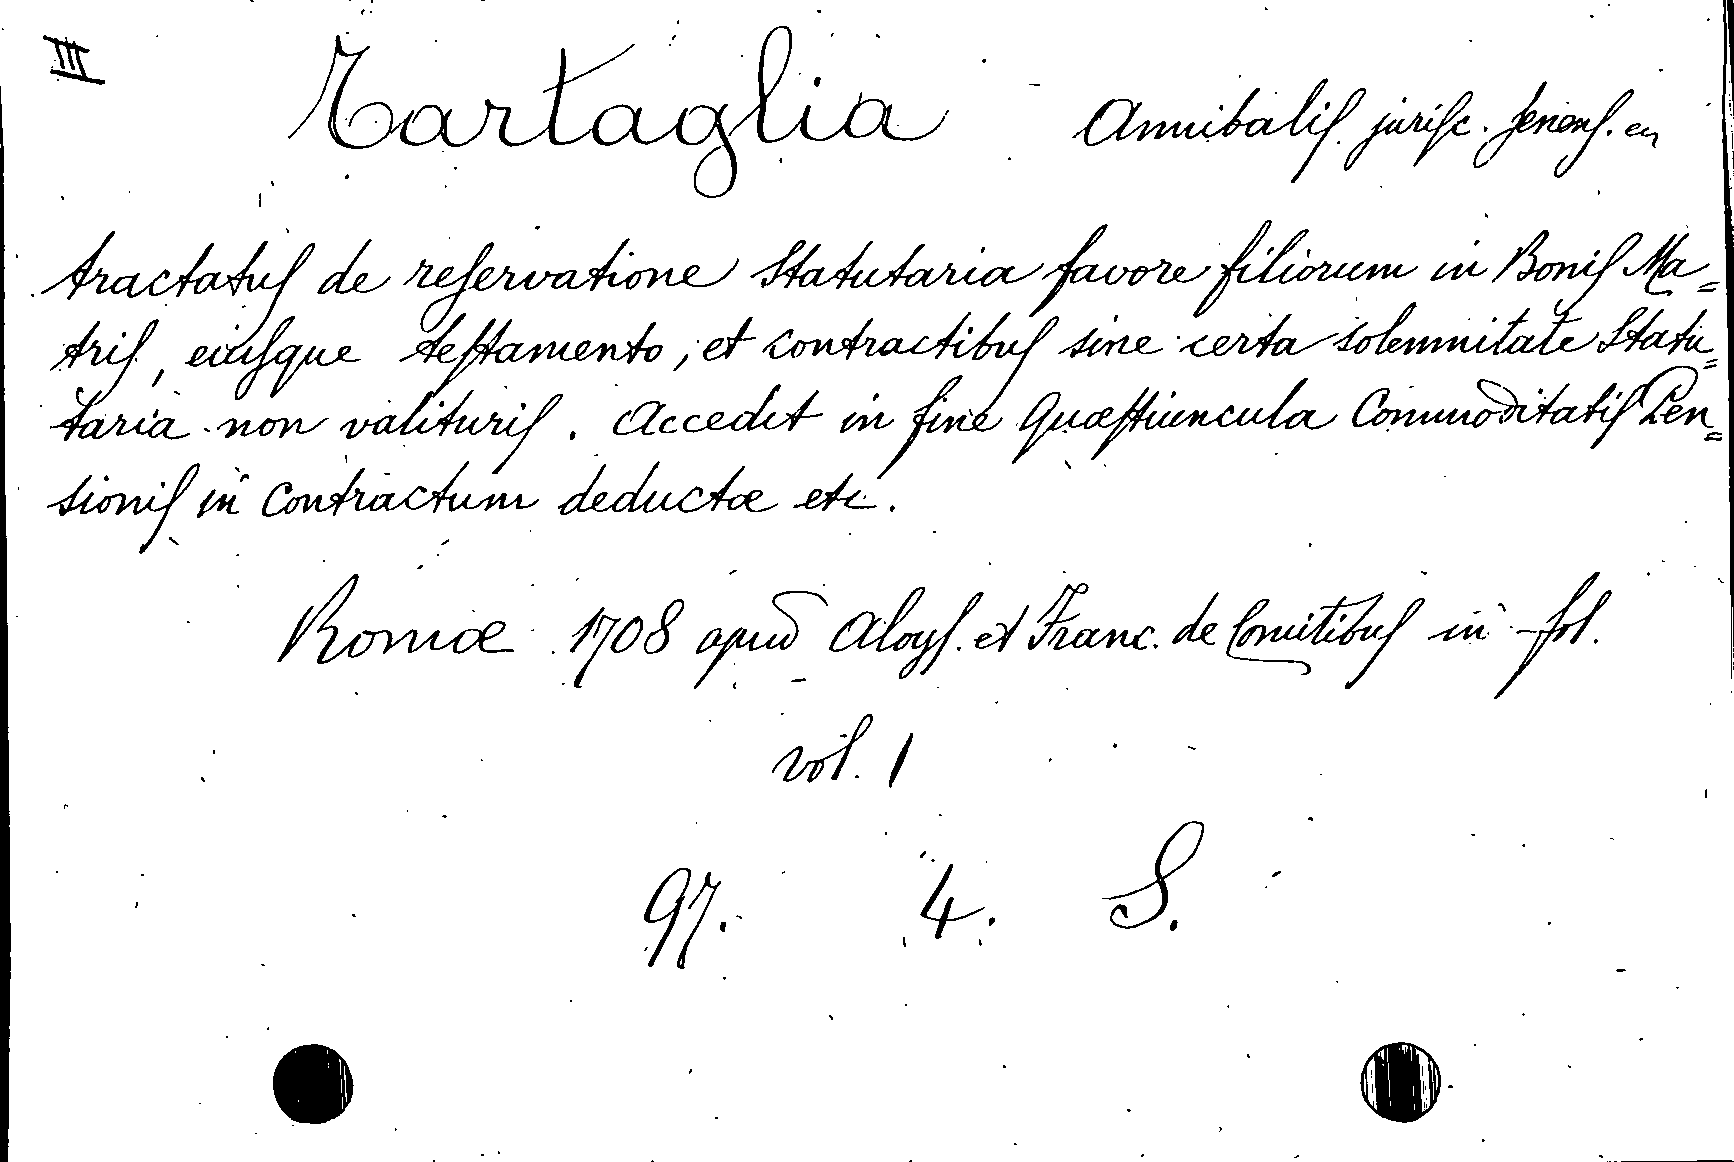 III
Tartaglia Annibalis jurisc. senens. en
tractatus de reservatione statutaria favore filiorum in Bonis Ma=
tris, eiusque testamento, et contractibus sine certa solemnitate statu=
taria non valituris. Accedit in fine Quæstiuncula Commoditatis Pen=
sionis in Contractum deductæ etc.
Romæ 1708 apud Aloys. et Franc. de Comitibus in-fol.
vol. 1
97. 4. S.